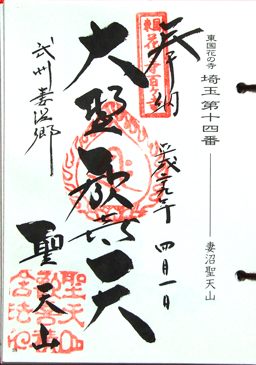 東国花の寺 埼玉 第十四番 ―― 妻沼聖天山
奉納
平成二九年 四月一日
大聖歓喜天
武州妻沼郷
聖天山